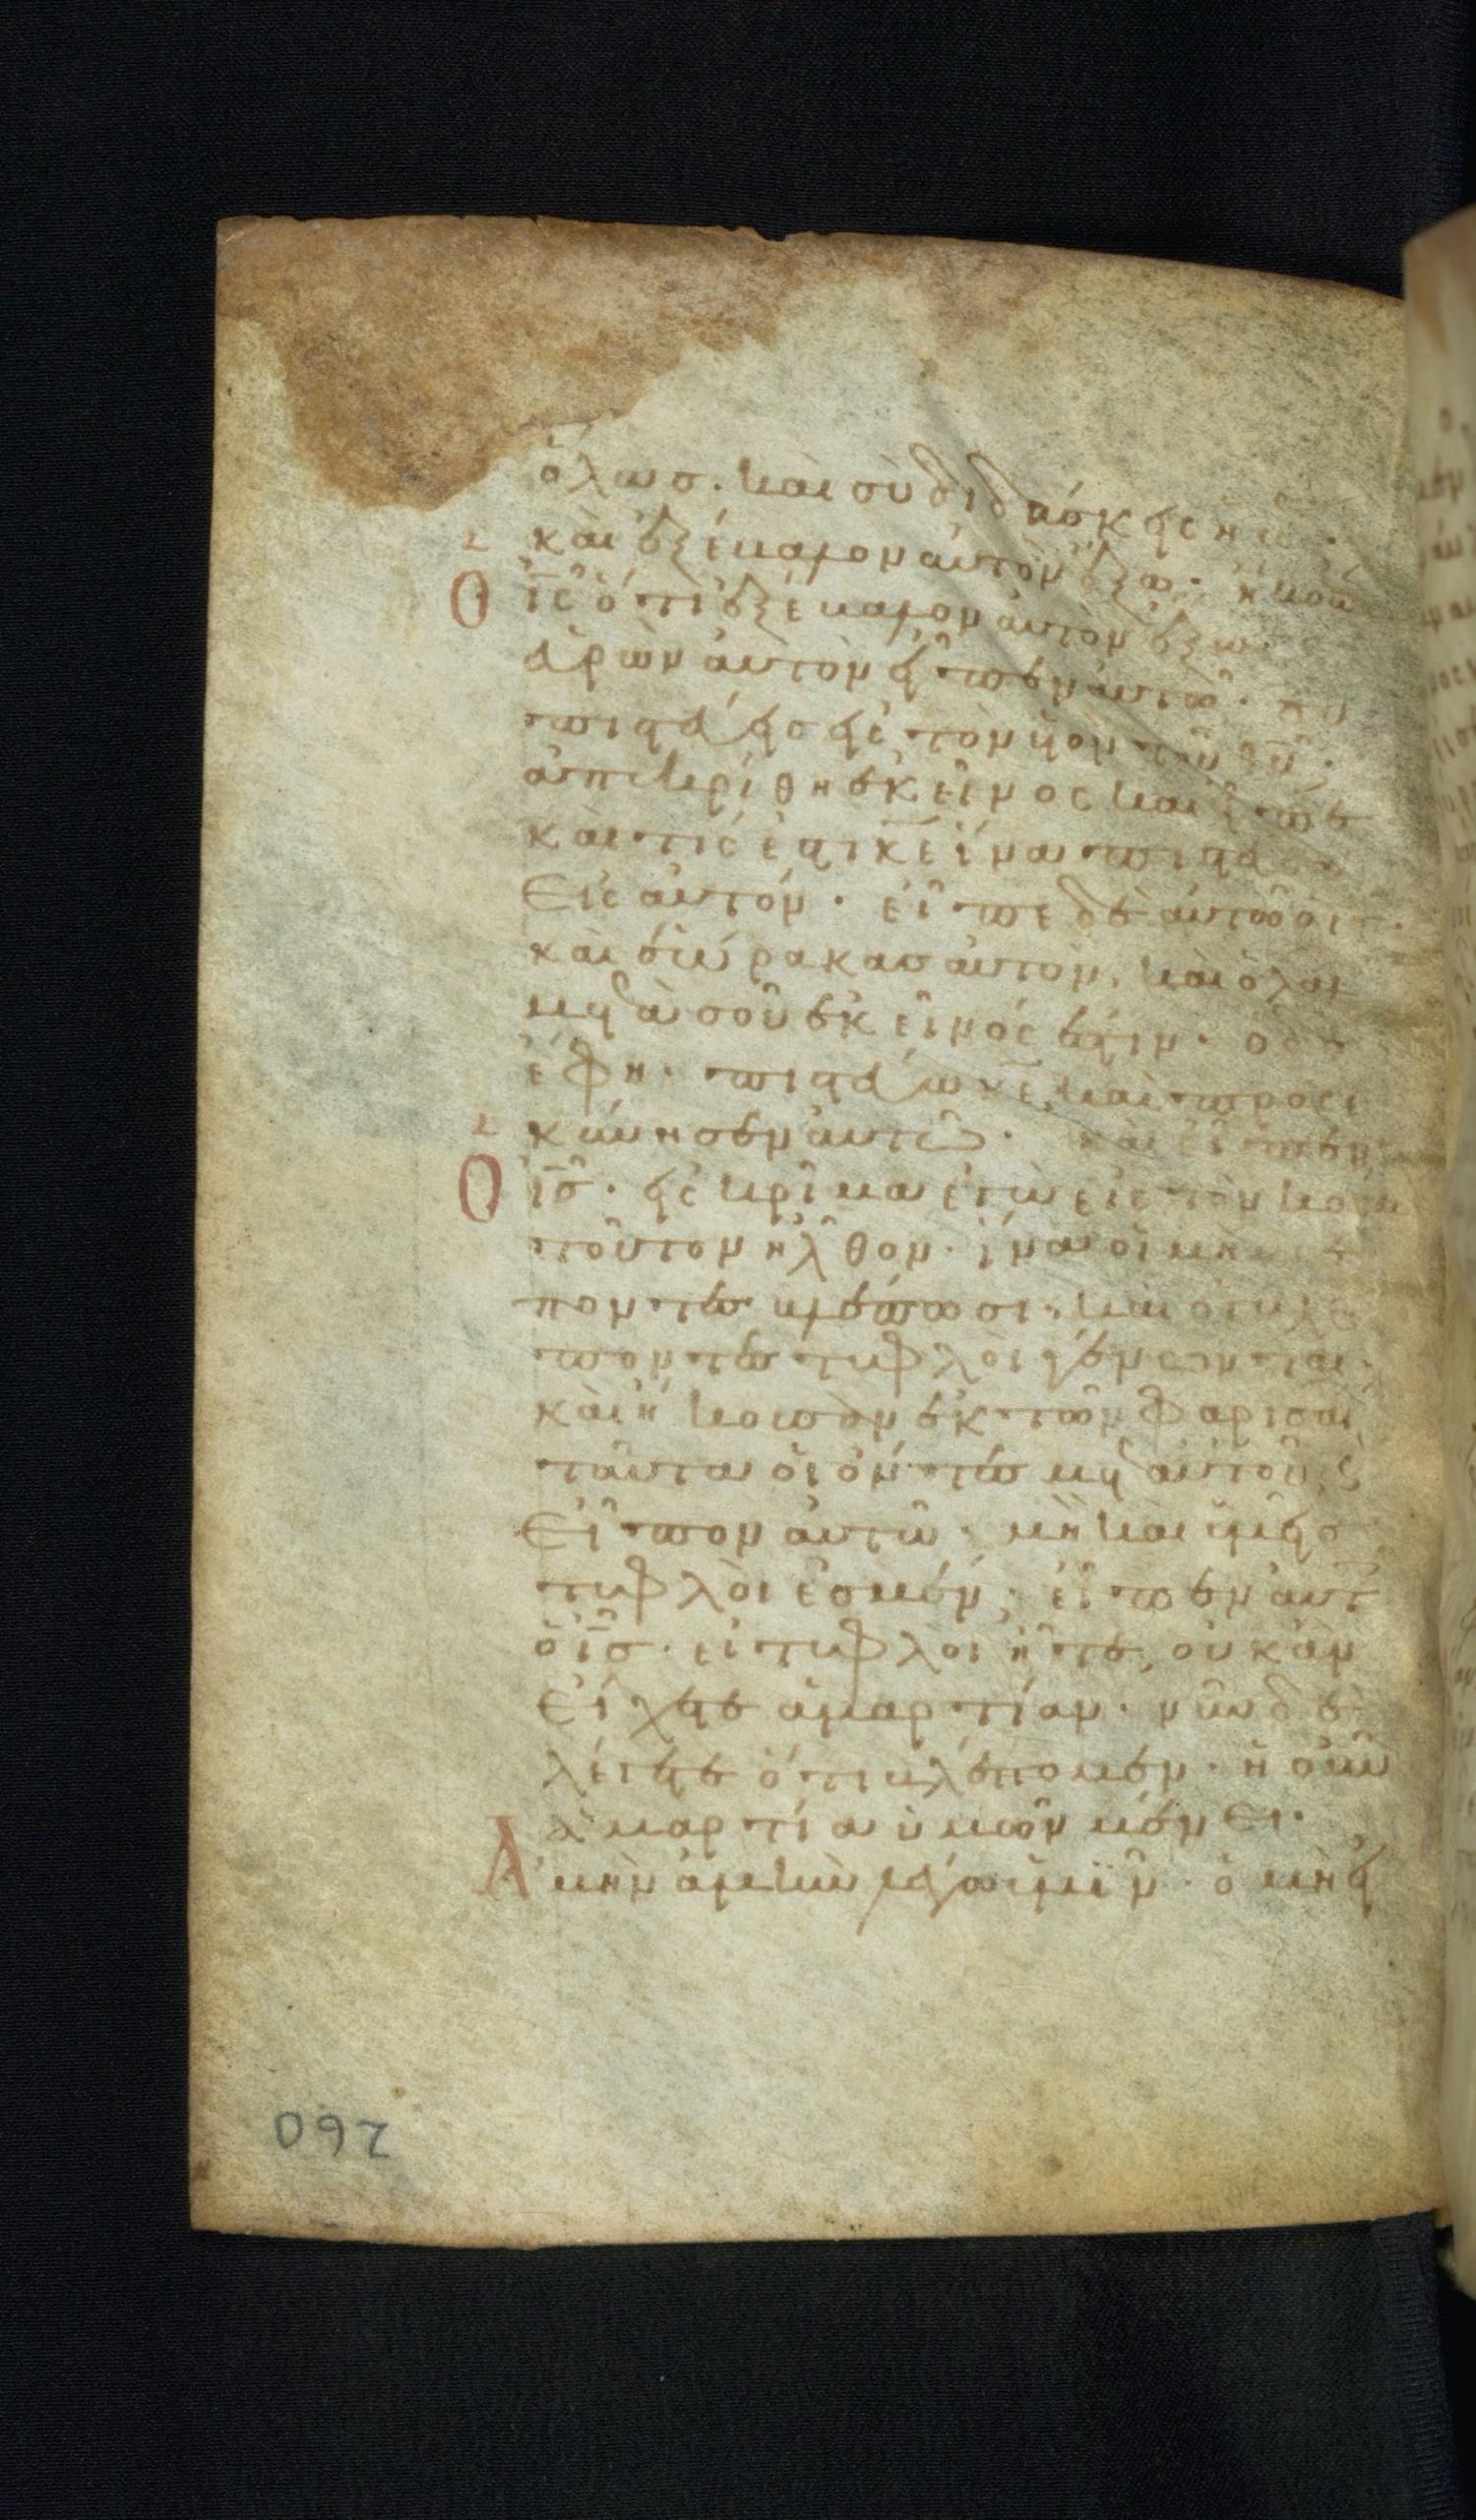 ὅλωσ. καὶ σὺ διδάσκεις ἡμ
καὶ ἐξέβαλον αὐτὸν ἔξω. ἤκου
Ο ἰς ὅτι ἐξέβαλον αὐτὸν ἔξω.
εὑρὼν αὐτὸν εἶπεν αὐτῶ. σὺ
πιστεύεις εἰς τὸν υἱὸν τοῦ θυ;
ἀπεκρίθη ἐκεῖνος καὶ εἶπε
καὶ τίς ἐστι κε ἵνα πιστεύσω
εἰς αὐτόν. εἶπε δὲ αὐτῶ ὁ ις.
καὶ ἑώρακασ αὐτὸν, καὶ ὁ λαλ
μετὰ σοῦ ἐκεῖνός ἐστιν. ὁ δὲ
ἔφη. πιστεύω κε, καὶ προσε
κύνησεν αὐτῶ. καὶ εἶπεν
Ο ισ. εἰς κρίμα ἐγὼ εἰς τὸν κοσμ
τοῦτον ἦλθον. ἵνα οἱ μὴ βλέ
ποντες βλέπωσι, καὶ οἱ βλέ
ποντες τυφλοὶ γένωνται.
καὶ ἤκουσαν ἐκ τῶν φαρισαί
ταῦτα οἱ ὄντες μετ αὐτοῦ, ς
Εἶπον αὐτῶ. μὴ καὶ ἡμεῖσ
τυφλοὶ ἐσμέν; εἶπεν αὐτ
ὁ ισ. εἰ τυφλοὶ ἦτε, οὐκ ἂν
Εἴχετε ἁμαρτίαν. νῦν δὲ
λέγετε ὅτι βλέπομεν. ἡ οὖν
ἁμαρτία ὑμῶν μένει.
Ἀμὴν ἀμὴν λέγω ὑμῖν. ὁ μὴ εἰ
260